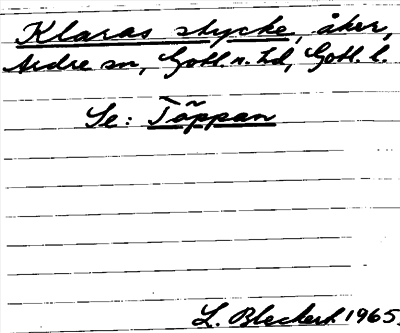 Klaras stycke, åker,
Ardre sn, Gotl. n. hd, Gotl. l.
Se: Täppan
L. Bleckert. 1965.